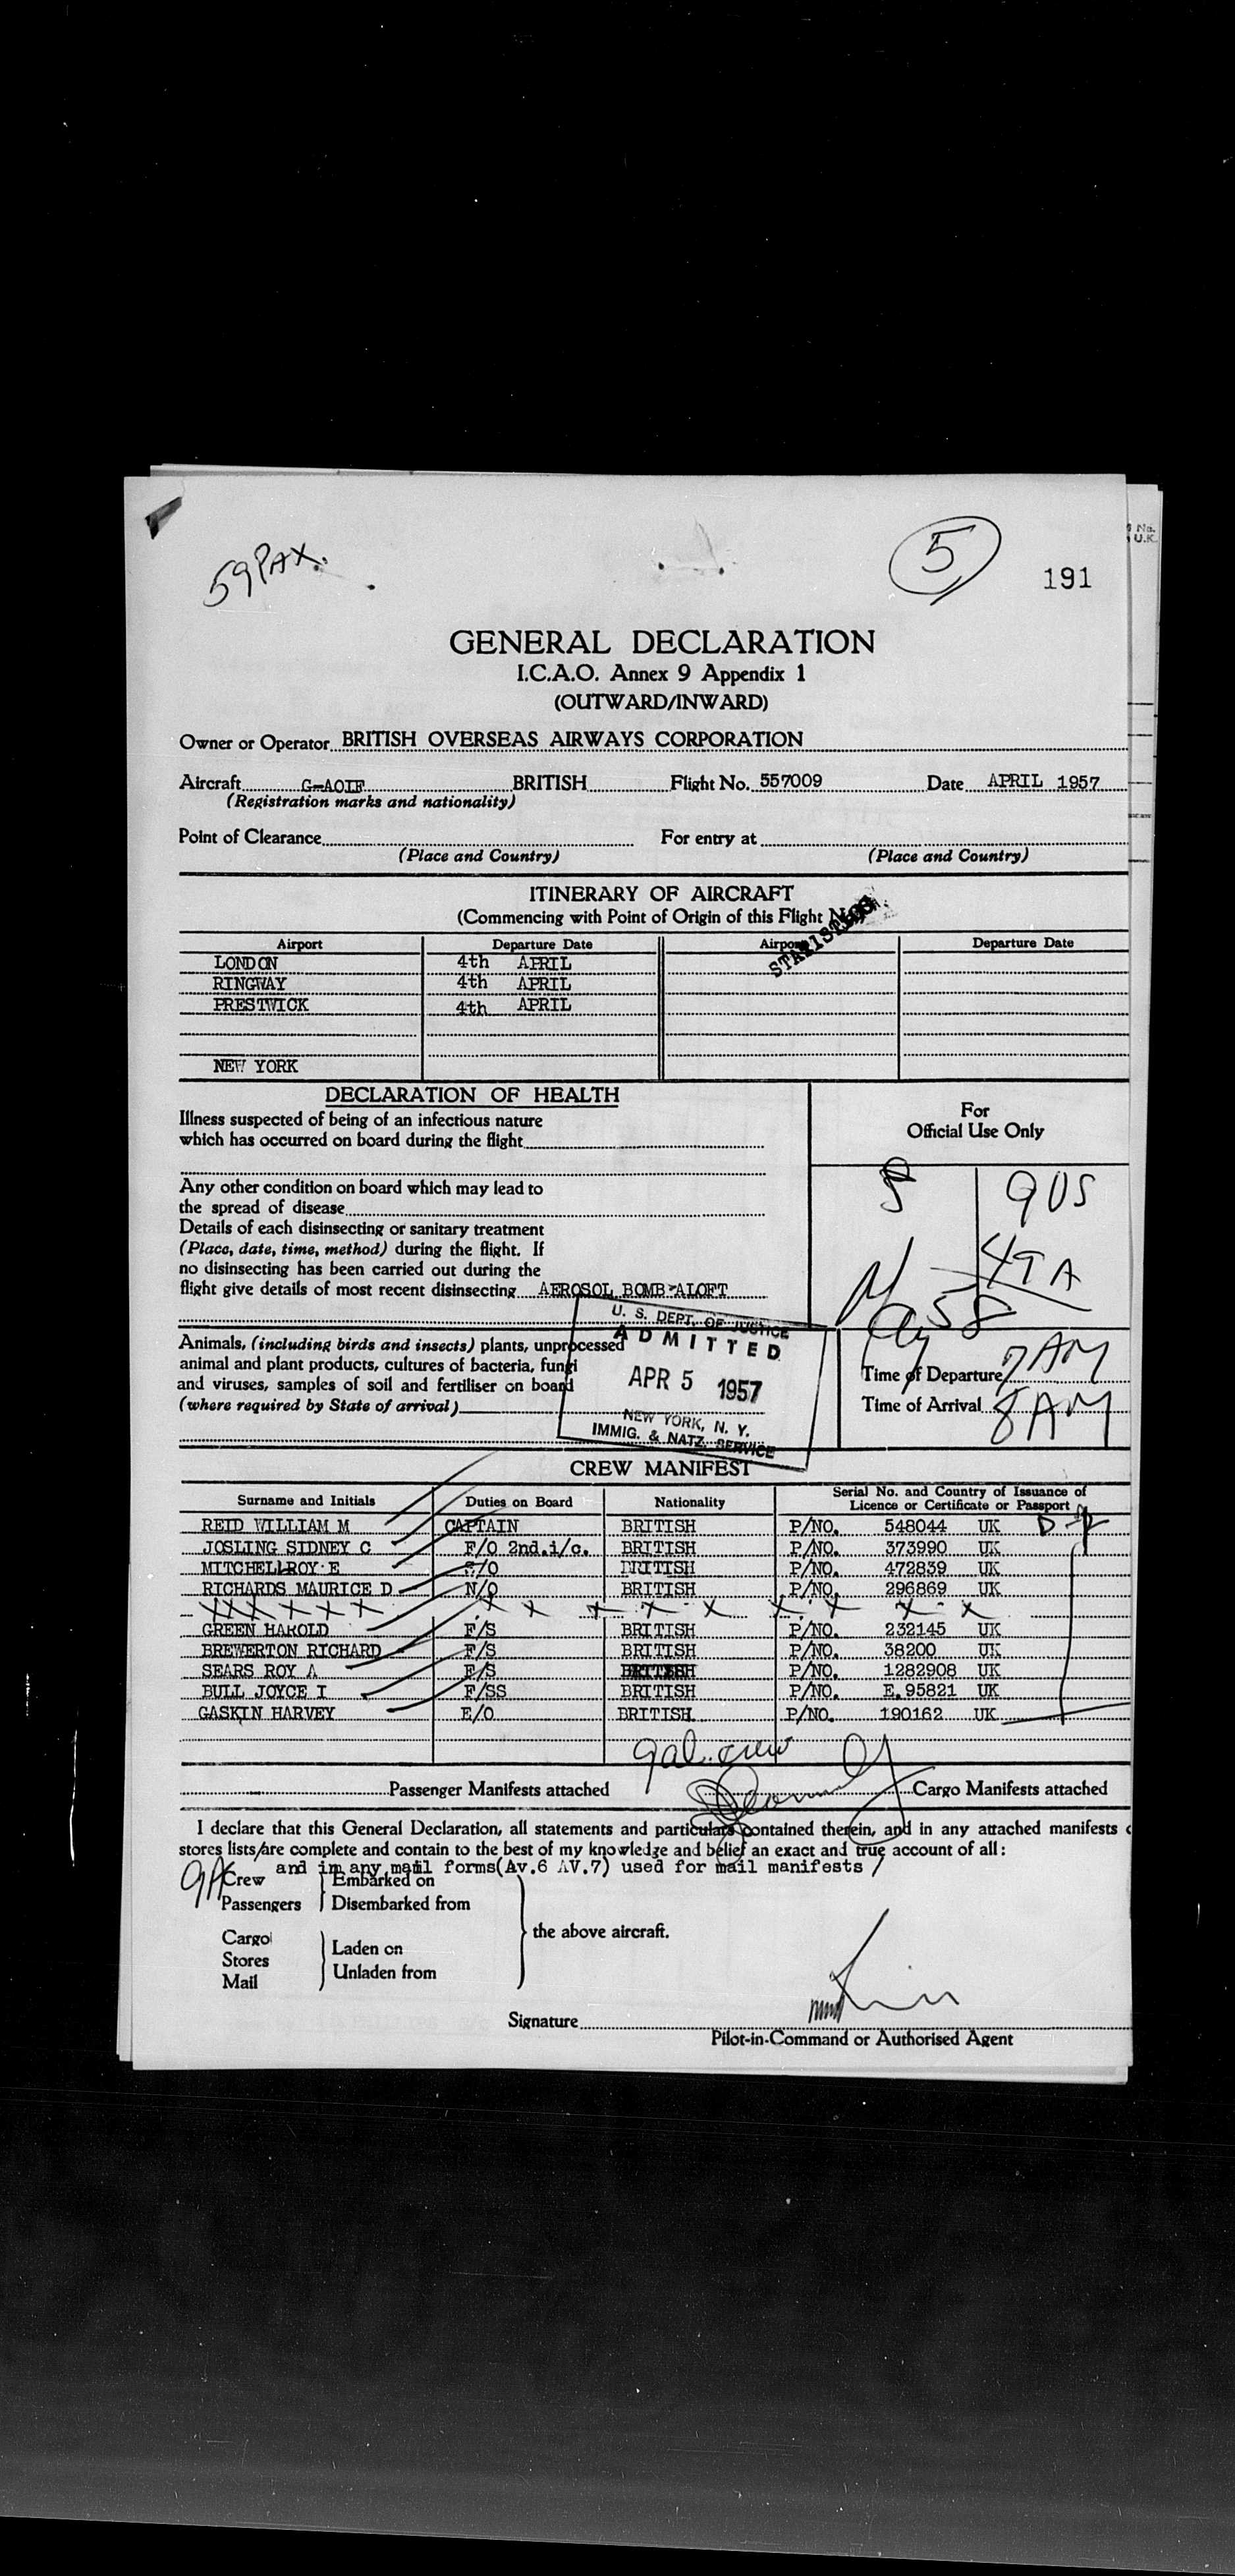 59 PAX.
5
191
No.
U.K.
GENERAL DECLARATION
I.C.A.O. Annex 9 Appendix 1
(OUTWARD/INWARD)
Owner or Operator BRITISH OVERSEAS AIRWAYS CORPORATION
Aircraft G-AOIF BRITISH Flight No. 557009 Date APRIL 1957
(Registration marks and nationality)
Point of Clearance For entry at
(Place and Country) (Place and Country)
ITINERARY OF AIRCRAFT
(Commencing with Point of Origin of this Flight
STATISTICS
Airport Departure Date Airport Departure Date
LONDON 4th APRIL
RINGWAY 4th APRIL
PRESTWICK 4th APRIL
NEW YORK
DECLARATION OF HEALTH
Illness suspected of being of an infectious nature
which has occurred on board during the flight
Any other condition on board which may lead to
the spread of disease
Details of each disinsecting or sanitary treatment
(Place, date, time, method) during the flight. If
no disinsecting has been carried out during the
flight give details of most recent disinsecting AEROSOL BOMB ALOFT
For
Official Use Only
9 US
49 A
58
Animals, (including birds and insects) plants, unprocessed
animal and plant products, cultures of bacteria, fungi
and viruses, samples of soil and fertiliser on board
(where required by State of arrival)
U. S. DEPT. OF JUSTICE
ADMITTED
APR 5 1957
NEW YORK, N. Y.
IMMIG. & NATZ. SERVICE
Time of Departure 7 AM
Time of Arrival 8 AM
CREW MANIFEST
Surname and Initials Duties on Board Nationality Serial No. and Country of Issuance of
Licence or Certificate or Passport
REID WILLIAM M CAPTAIN BRITISH P/NO. 548044 UK
JOSLING SIDNEY C F/O 2nd.i/c. BRITISH P/NO. 373990 UK
MITCHELL ROY E /O BRITISH P/NO. 472839 UK
RICHARDS MAURICE D N/O BRITISH P/NO. 296869 UK
XXXXXX X X X X X X X X X
GREEN HAROLD F/S BRITISH P/NO. 232145 UK
BREWERTON RICHARD F/S BRITISH P/NO. 38200 UK
SEARS ROY A F/S BRITISH P/NO. 1282908 UK
BULL JOYCE I F/SS BRITISH P/NO. E.95821 UK
GASKIN HARVEY E/O BRITISH P/NO. 190162 UK
9 al. crew
Passenger Manifests attached Cargo Manifests attached
I declare that this General Declaration, all statements and particulars contained therein, and in any attached manifests
stores lists/are complete and contain to the best of my knowledge and belief an exact and true account of all:
and in any mail forms(Av.6 AV.7) used for mail manifests /
9A Crew Embarked on
Passengers Disembarked from
the above aircraft.
Cargo
Stores Laden on
Mail Unladen from
Signature
Pilot-in-Command or Authorised Agent